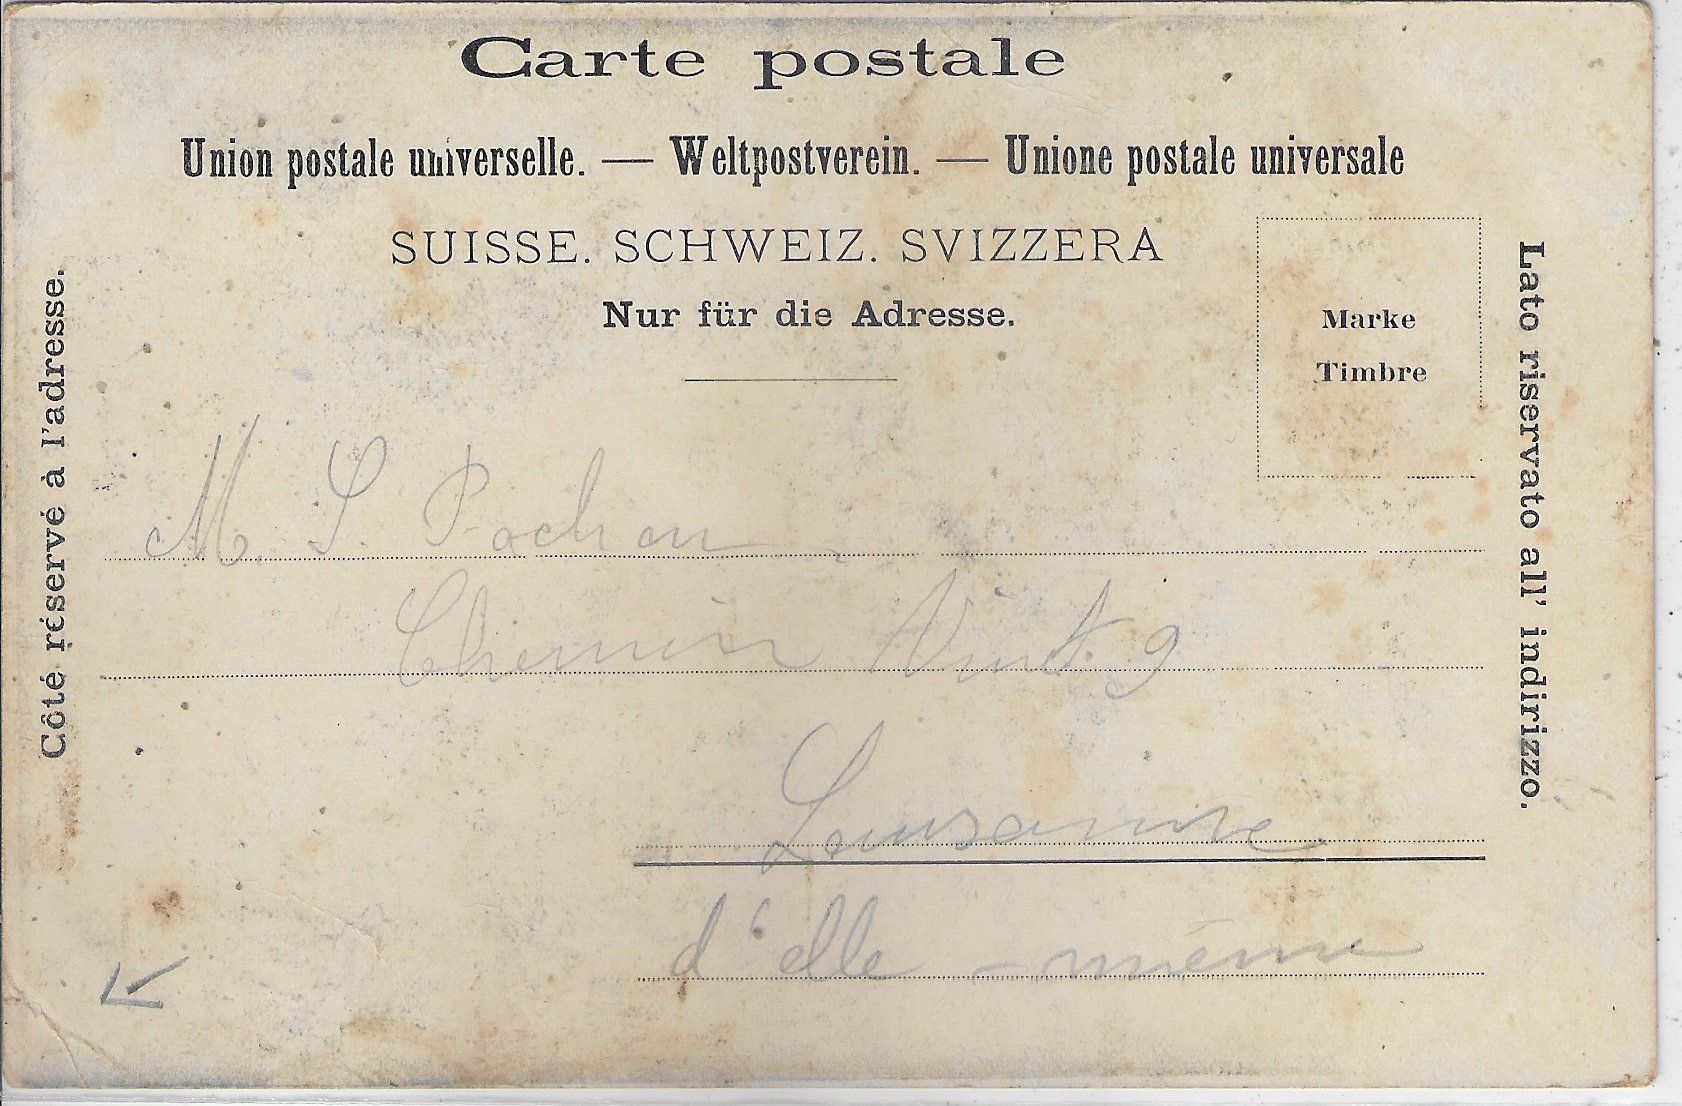 Carte postale
Union postale universelle. — Weltpostverein. — Unione postale universale
SUISSE. SCHWEIZ. SVIZZERA
Nur für die Adresse.
Marke
Timbre
Côté réservé à l'adresse.
Lato riservato all' indirizzo.
M. S. Pochon
Chemin Vinet 9
Lausanne
d'elle-même